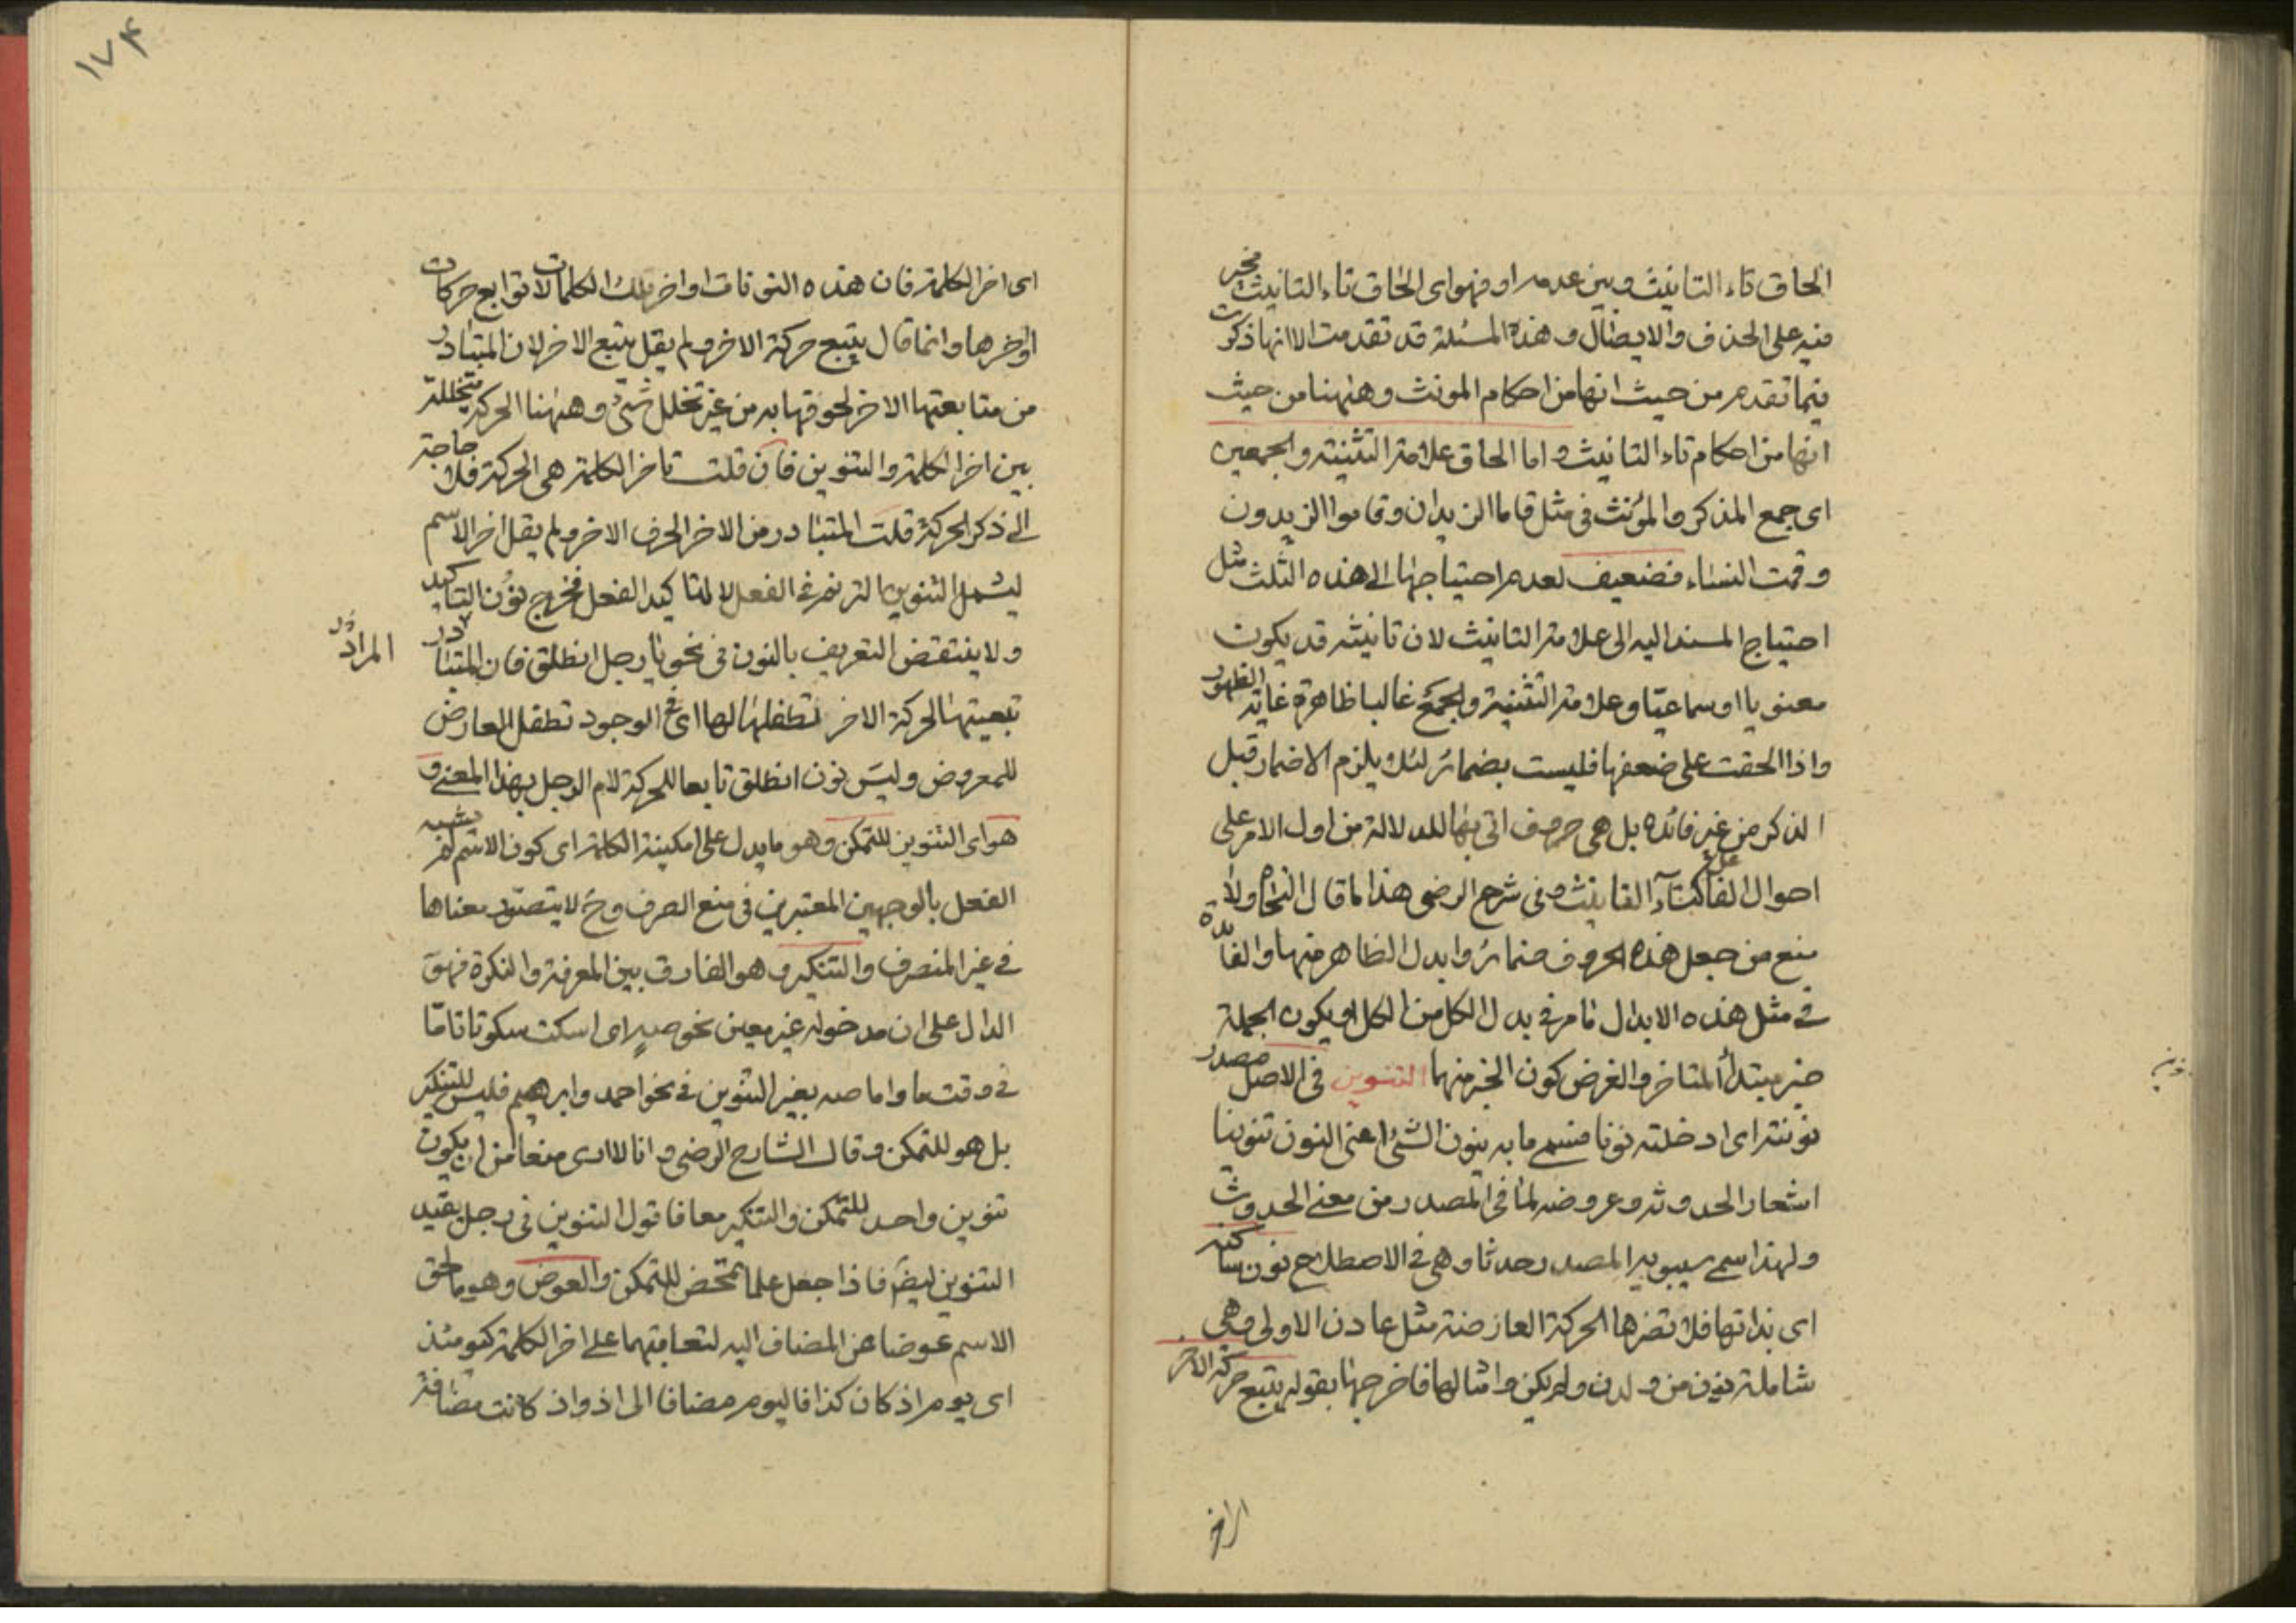 الحاق تاء التانيث وبين عدمه او فهو اى الحاق تاء التانيث مخير
فيه على الحذف والايصال وهذه المسئلة قد تقدمت الا انها ذكرت
فيما تقدم من حيث انها من احكام المونث وههنا من حيث
انها من احكام تاء التانيث واما الحاق علامة التثنية والجمعين
اى جمع المذكر والمؤنث فى مثل قاما الزيدان وقاموا الزيدون
وقمن النساء فضعيف لعدم احتياجها الى هذه الثلث مثل
احتياج المسند اليه الى علامة التانيث لان تانيثه قد يكون
معنويا او سماعيّا وعلامة التثنية والجمع غالبا ظاهرة غاية الظهور
واذا الحقت على ضعفها فليست بضمائر لئلا يلزم الاضمار قبل
الذكر من غير فائدة بل هى حرف اتى بها للدلالة من اول الامر على
احوال الفاعل كتاء التانيث وفى شرح الرضى هذا ما قال النحاة ولا
منع من جعل هذه الحروف ضمائر وابدل الظاهر منها والفائدة
فى مثل هذه الابدال ما مر فى بدل الكل من الكل او يكون الجملة
خبر مبتدأ المتاخر والغرض كون الخبر منها التنوين فى الاصل مصدر
نونته اى ادخلته نونا فسمى ما به ينون الشئ اعنى النون تنوينا
اشعارا لحدوثه وعروضه لما فى المصدر من معنى الحدوث
ولهذا سمى سيبويه المصدر حدثا وهى فى الاصطلاح نون ساكنه
اى بذاتها فلا تضرها الحركة العارضة مثل عادن الاولى وهى
شاملة نون من ولدن ولم يكن وامثالها فاخرجها بقوله يتبع حركة الاخر
اى اخر الكلمة فان هذه النونات اواخر تلك الكلمات لا توابع حركات
اواخرها وانما قال يتبع حركة الاخر ولم يقل يتبع الاخر لان المتبادر
من متابعتها الاخر لحوقها به من غير تخلل شئ وههنا الحركة متخللة
بين اخر الكلمة والتنوين فان قلت تاخر الكلمة هى الحركة فلا حاجة
الى ذكر الحركة قلت المتبادر من الاخر الحرف الاخر ولم يقل اخر الاسم
ليشمل التنوين الترنم فى الفعل لا لتاكيد الفعل فخرج نون التاكيد
ولا ينتقض التعريف بالنون فى نحو يا رجل انطلق فان المتبادر
المراد
تبعيتها لحركة الاخر تطفلها لها اى فى الوجود تطفل العارض
للمعروض وليس نون انطلق تابعا للحركة لام الرجل بهذا المعنى و
هو اى التنوين للتمكن وهو ما يدل على امكنية الكلمة اى كون الاسم لم يشبه
الفعل بالوجهين المعتبرين فى منع الصرف وح لا يتصوّر معناها
فى غير المنصرف والتنكير وهو الفارق بين المعرفة والنكرة فهو
الدال على ان مدخوله غير معين نحو صهٍ اى اسكت سكوتا تامّا
فى وقت ما واما صه بغير التنوين فى نحو احمد وابرهيم فليس للتنكير
بل هو للتمكن وقال الشارح الرضى وانا لا ارى منعا من ان يكون
تنوين واحد للتمكن والتنكير معا فاقول التنوين فى رجل يفيد
التنوين ايضا فاذا جعل علما تمحض للتمكن والعوض وهو ما لحق
الاسم عوضا عن المضاف اليه لتعاقبهما على اخر الكلمة كيومئذ
اى يوم اذ كان كذا فاليوم مضافا الى اذ واذ كانت مضافة